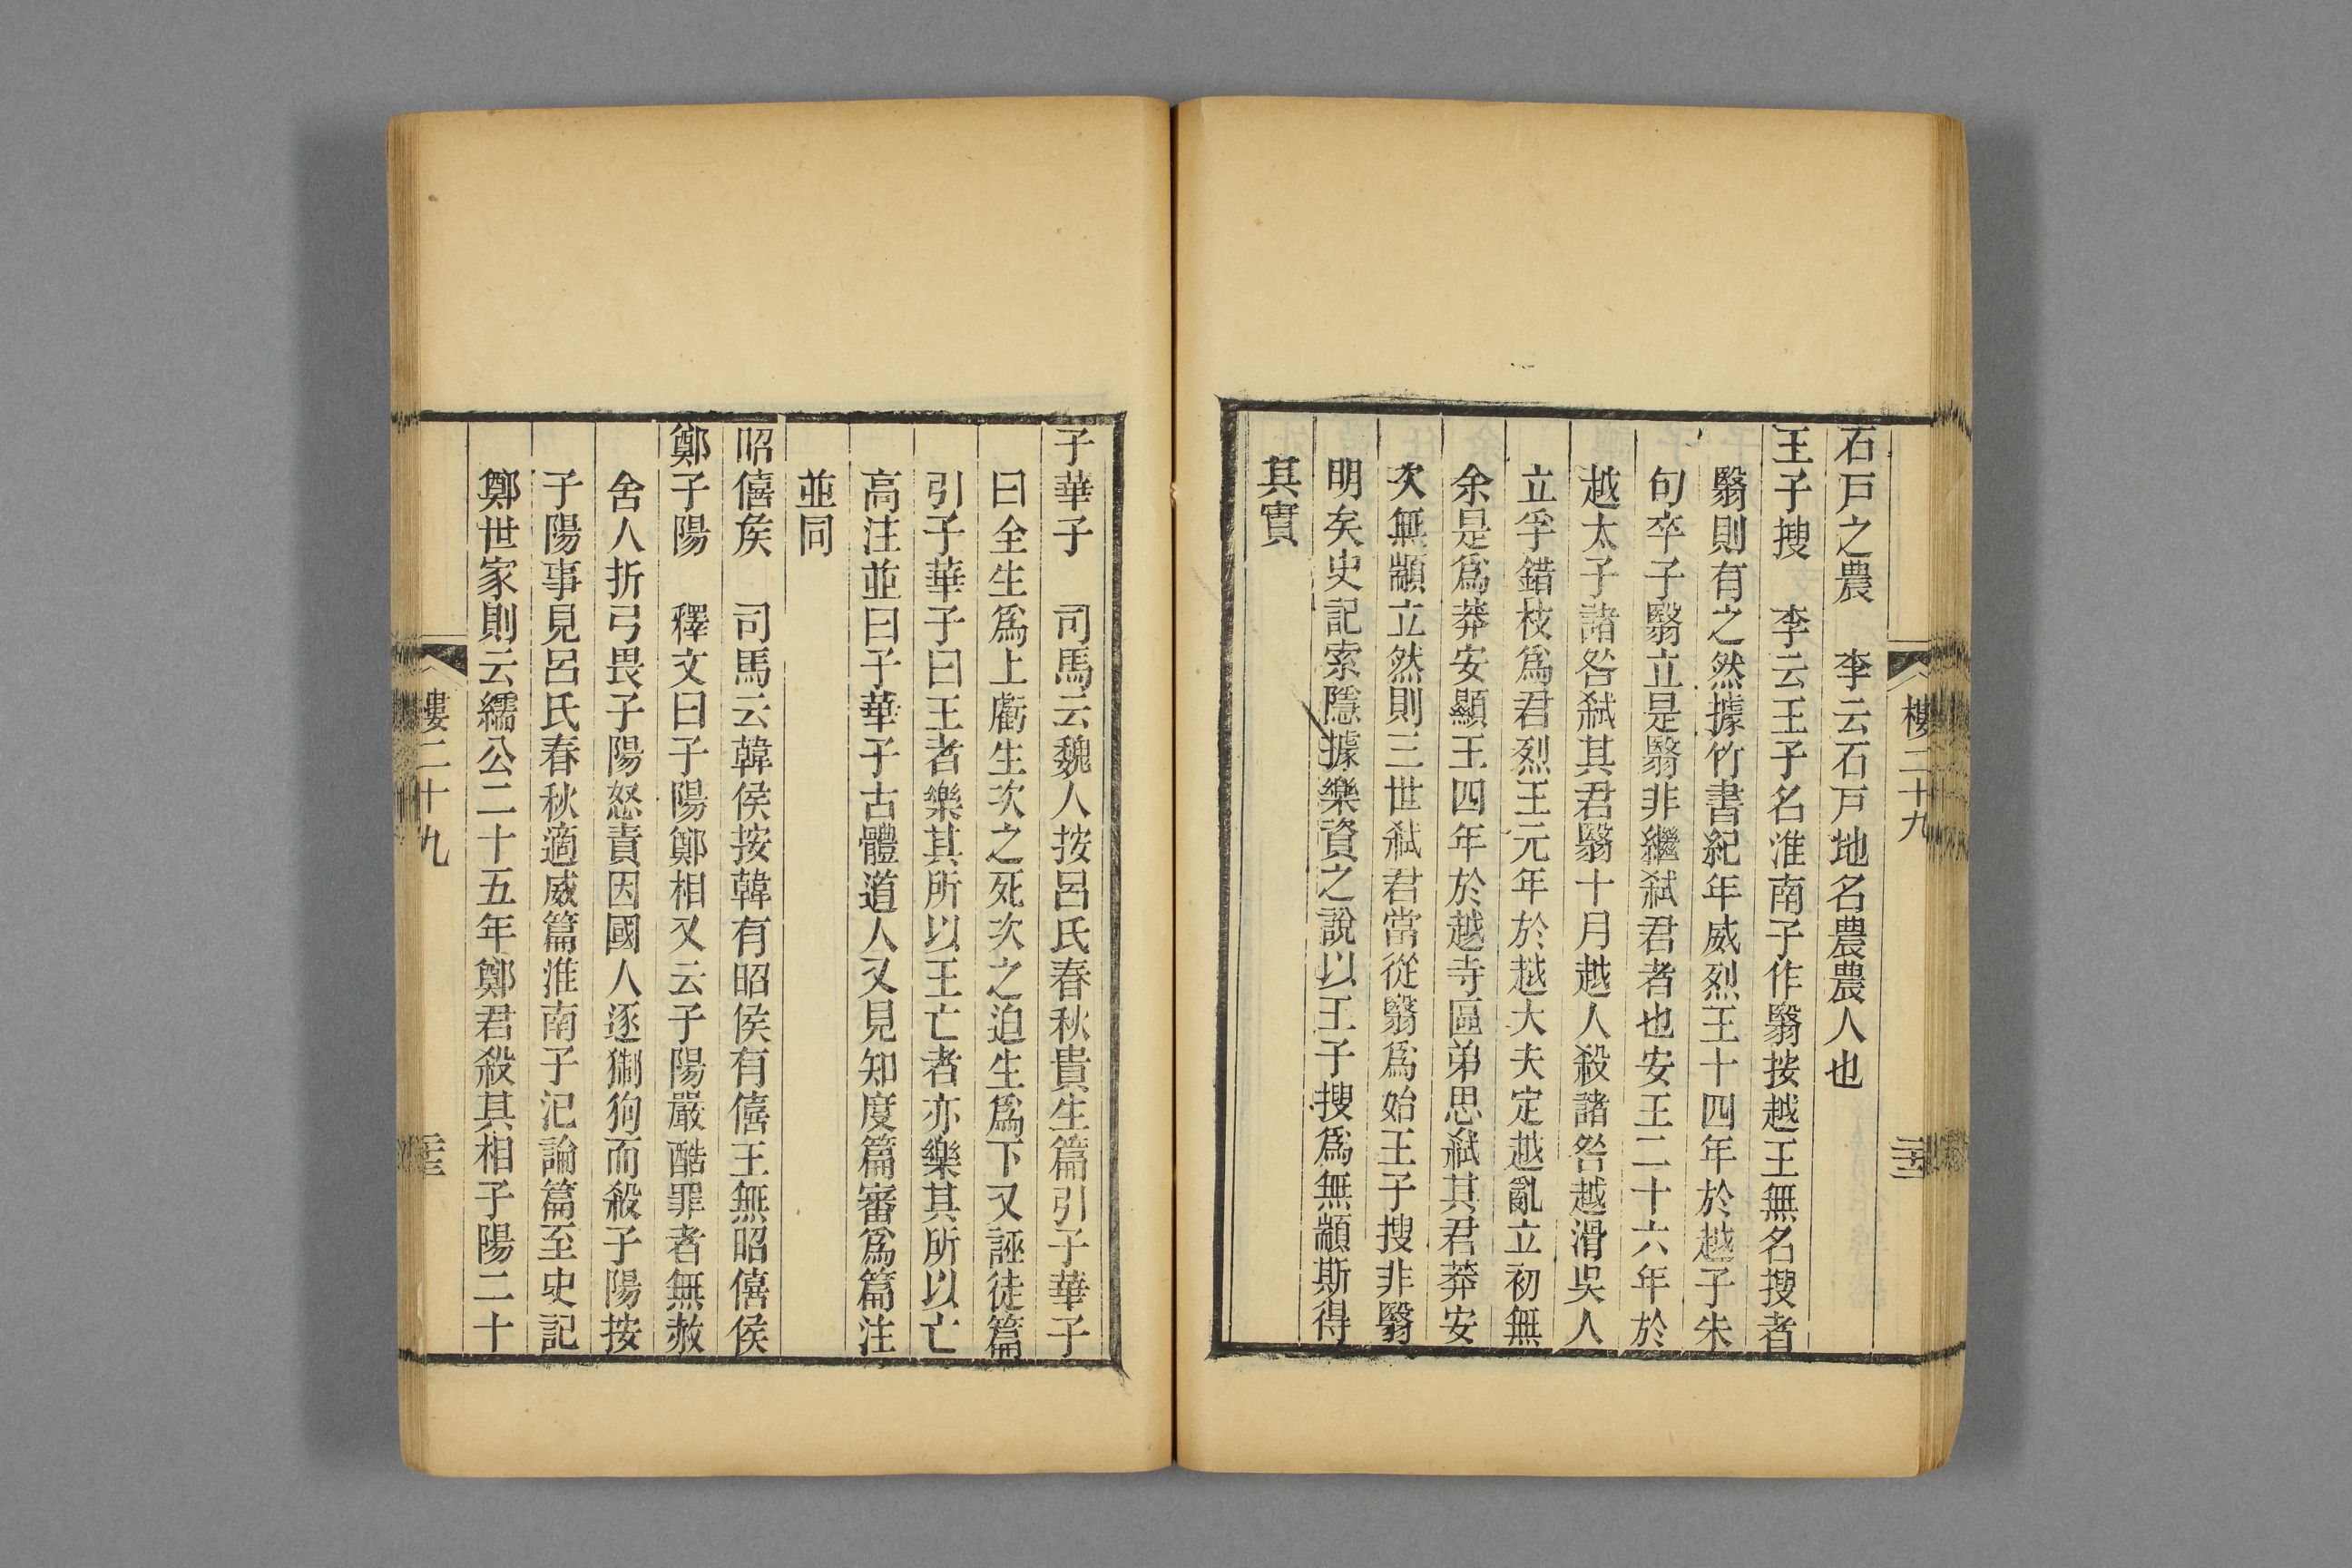 石戸之農　李云石戸地名農農人也
王子搜　李云王子名淮南子作翳按越王無名搜者
翳則有之然據竹書紀年威烈王十四年於越子朱
句卒子翳立是翳非繼弑君者也安王二十六年於
越太子諸咎弑其君翳十月越人殺諸咎越滑吳人
立孚錯枝爲君烈王元年於越大夫定越亂立初無
余是爲莽安顯王四年於越寺區弟思弑其君莽安
次無顓立然則三世弑君當從翳爲始王子搜非翳
明矣史記索隱據樂資之說以王子搜爲無顓斯得
其實
樓二十九
子華子　司馬云魏人按呂氏春秋貴生篇引子華子
曰全生爲上虧生次之死次之迫生爲下又誣徒篇
引子華子曰王者樂其所以王亡者亦樂其所以亡
高注並曰子華子古體道人又見知度篇審爲篇注
並同
昭僖矦　司馬云韓侯按韓有昭侯有僖王無昭僖侯
鄭子陽　釋文曰子陽鄭相又云子陽嚴酷罪者無赦
舍人折弓畏子陽怒責因國人逐猘狗而殺子陽按
子陽事見呂氏春秋適威篇淮南子氾論篇至史記
鄭世家則云繻公二十五年鄭君殺其相子陽二十
樓二十九